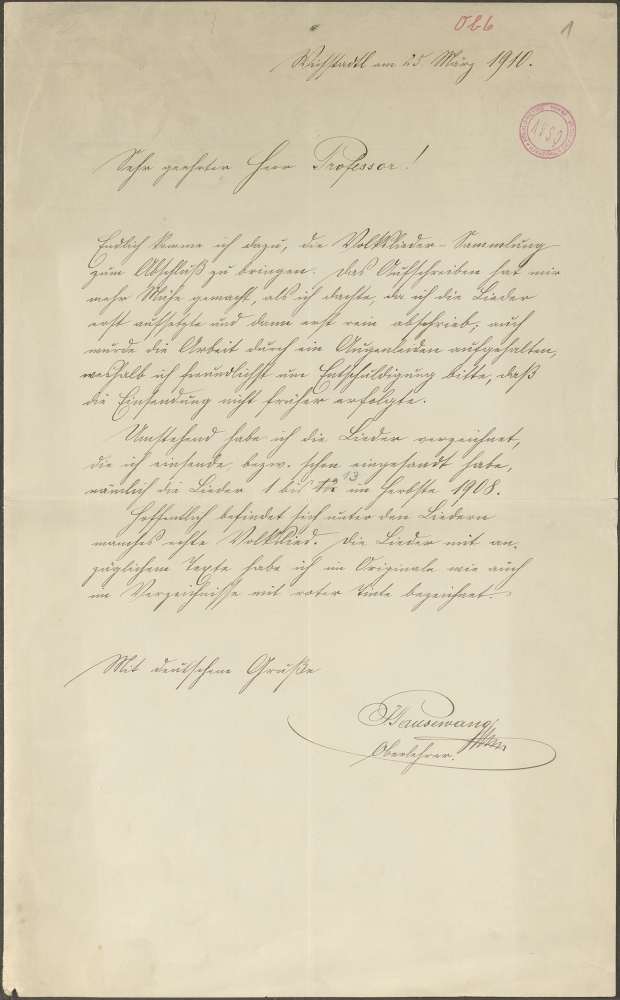 Ob6
1
Wichstadtl am 25. März 1910.
Sehr geehrter Herr Professor!
Endlich komme ich dazu, die Volkslieder-Sammlung
zum Abschluß zu bringen. Das Aufschreiben hat mir
mehr Mühe gemacht, als ich dachte, da ich die Lieder
erst aufsetzte und dann erst rein abschrieb; auch
wurde die Arbeit durch ein Augenleiden aufgehalten,
weshalb ich freundlichst um Entschuldigung bitte, daß
die Einsendung nicht früher erfolgte.
Umstehend habe ich die Lieder verzeichnet,
die ich einsende, bezw. schon eingesandt habe,
nämlich die Lieder 1 bis 13 im Herbste 1908.
Hoffentlich befindet sich unter den Liedern
manches echte Volkslied. Die Lieder mit an-
züglichem Texte habe ich im Originale wie auch
im Verzeichnisse mit roter Tinte bezeichnet.
Mit deutschem Gruße
Hausewang
Oberlehrer.